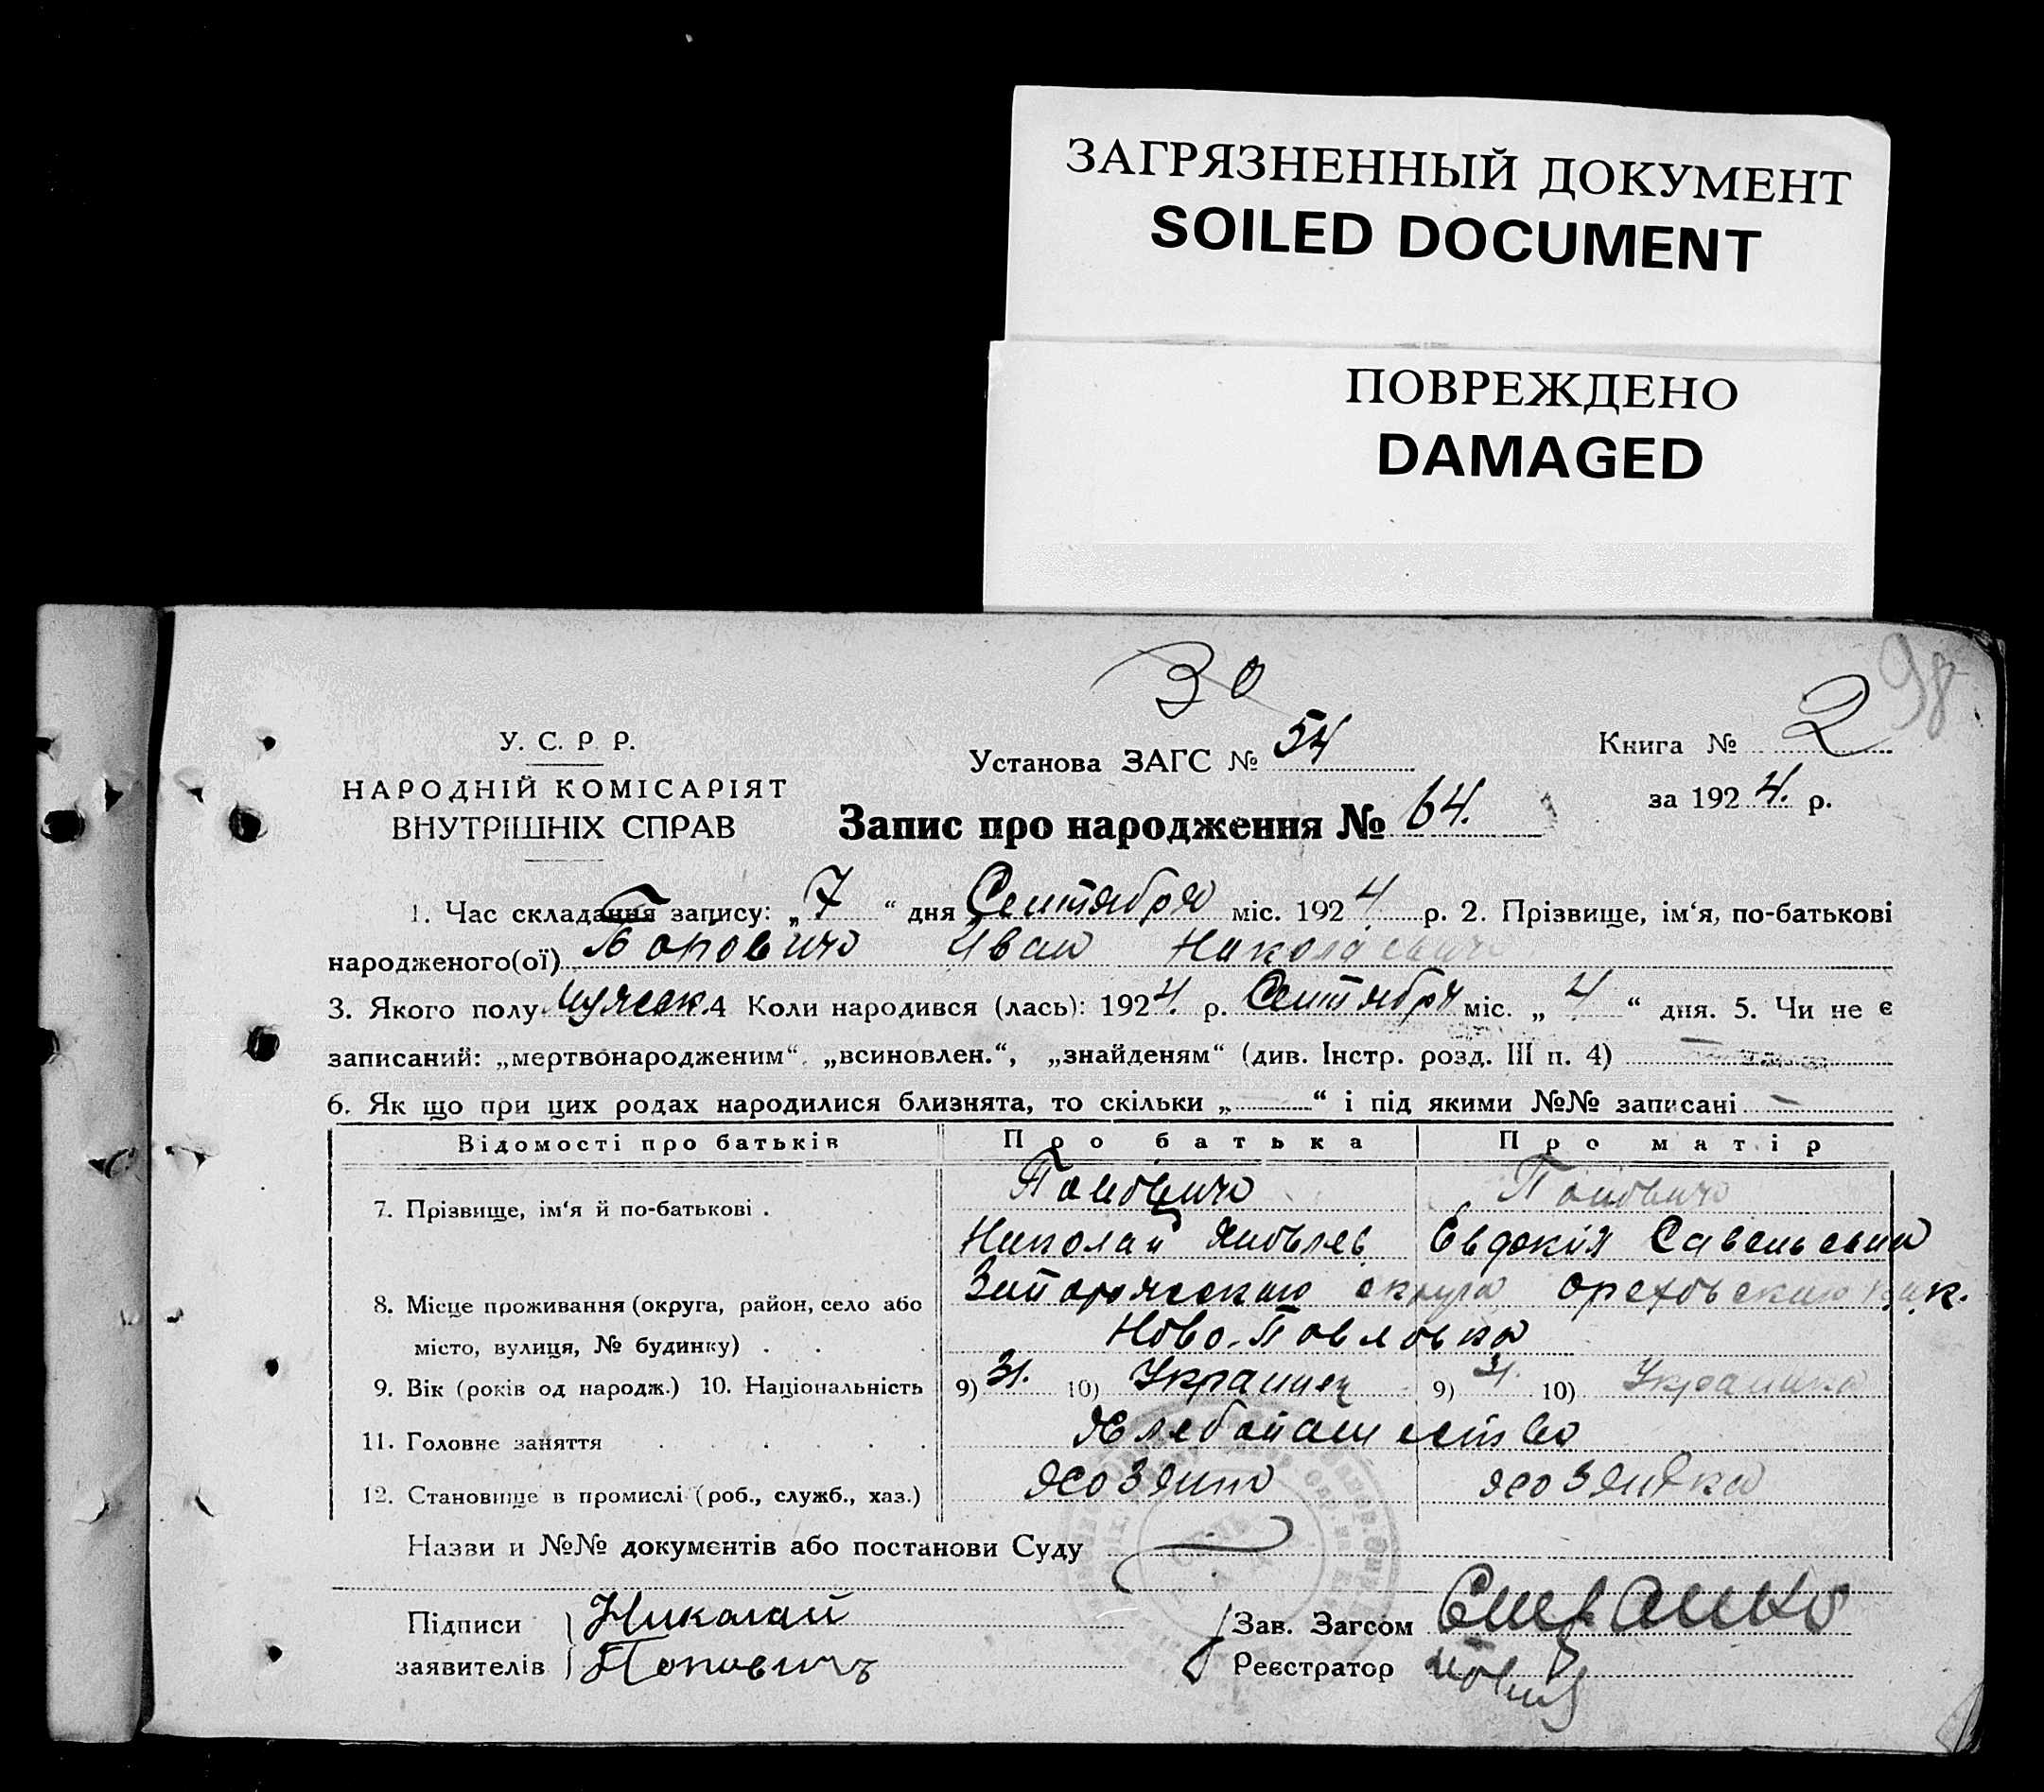 ЗАГРЯЗНЕННЫЙ ДОКУМЕНТ
SOILED DOCUMENT
ПОВРЕЖДЕНО
DAMAGED
30
98
У. С. Р. Р.
НАРОДНІЙ КОМІСАРІЯТ
ВНУТРІШНІХ СПРАВ
Установа ЗАГС № 54
Книга № 2
за 1924. р.
Запис про народження № 64.
1. Час складання запису: „7“ дня Сентября міс. 1924 р. 2. Прізвище, ім‘я, по-батькові
народженого(ої) Попович Иван Николаевич
3. Якого полу мужск. 4 Коли народився (лась): 1924. р. Сентября міс. „4“ дня. 5. Чи не є
записаний: „мертвонародженим“, „всиновлен.“, „знайденям“ (див. Інстр. розд. III п. 4) —
6. Як що при цих родах народилися близнята, то скільки „—“ і під якими №№ записані —
Відомості про батьків Про батька Про матір
7. Прізвище, ім‘я й по-батькові . Попович Попович
Николай Яковлев Евдокия Савельевна
8. Місце проживання (округа, район, село або Запорожскаю округа Ореховскаю
місто, вулиця, № будинку) . . . Ново-Павловка
9. Вік (років од народж.) 10. Національність 9) 31. 10) Украинец 9) 31. 10) Украинка
11. Головне заняття . . . . . Хлебопашество
12. Становище в промислі (роб., служб., хаз.) Хозяин хозяйка
Назви и №№ документів або постанови Суду
Підписи Николай Зав. Загсом
заявителів Поповичъ Реєстратор